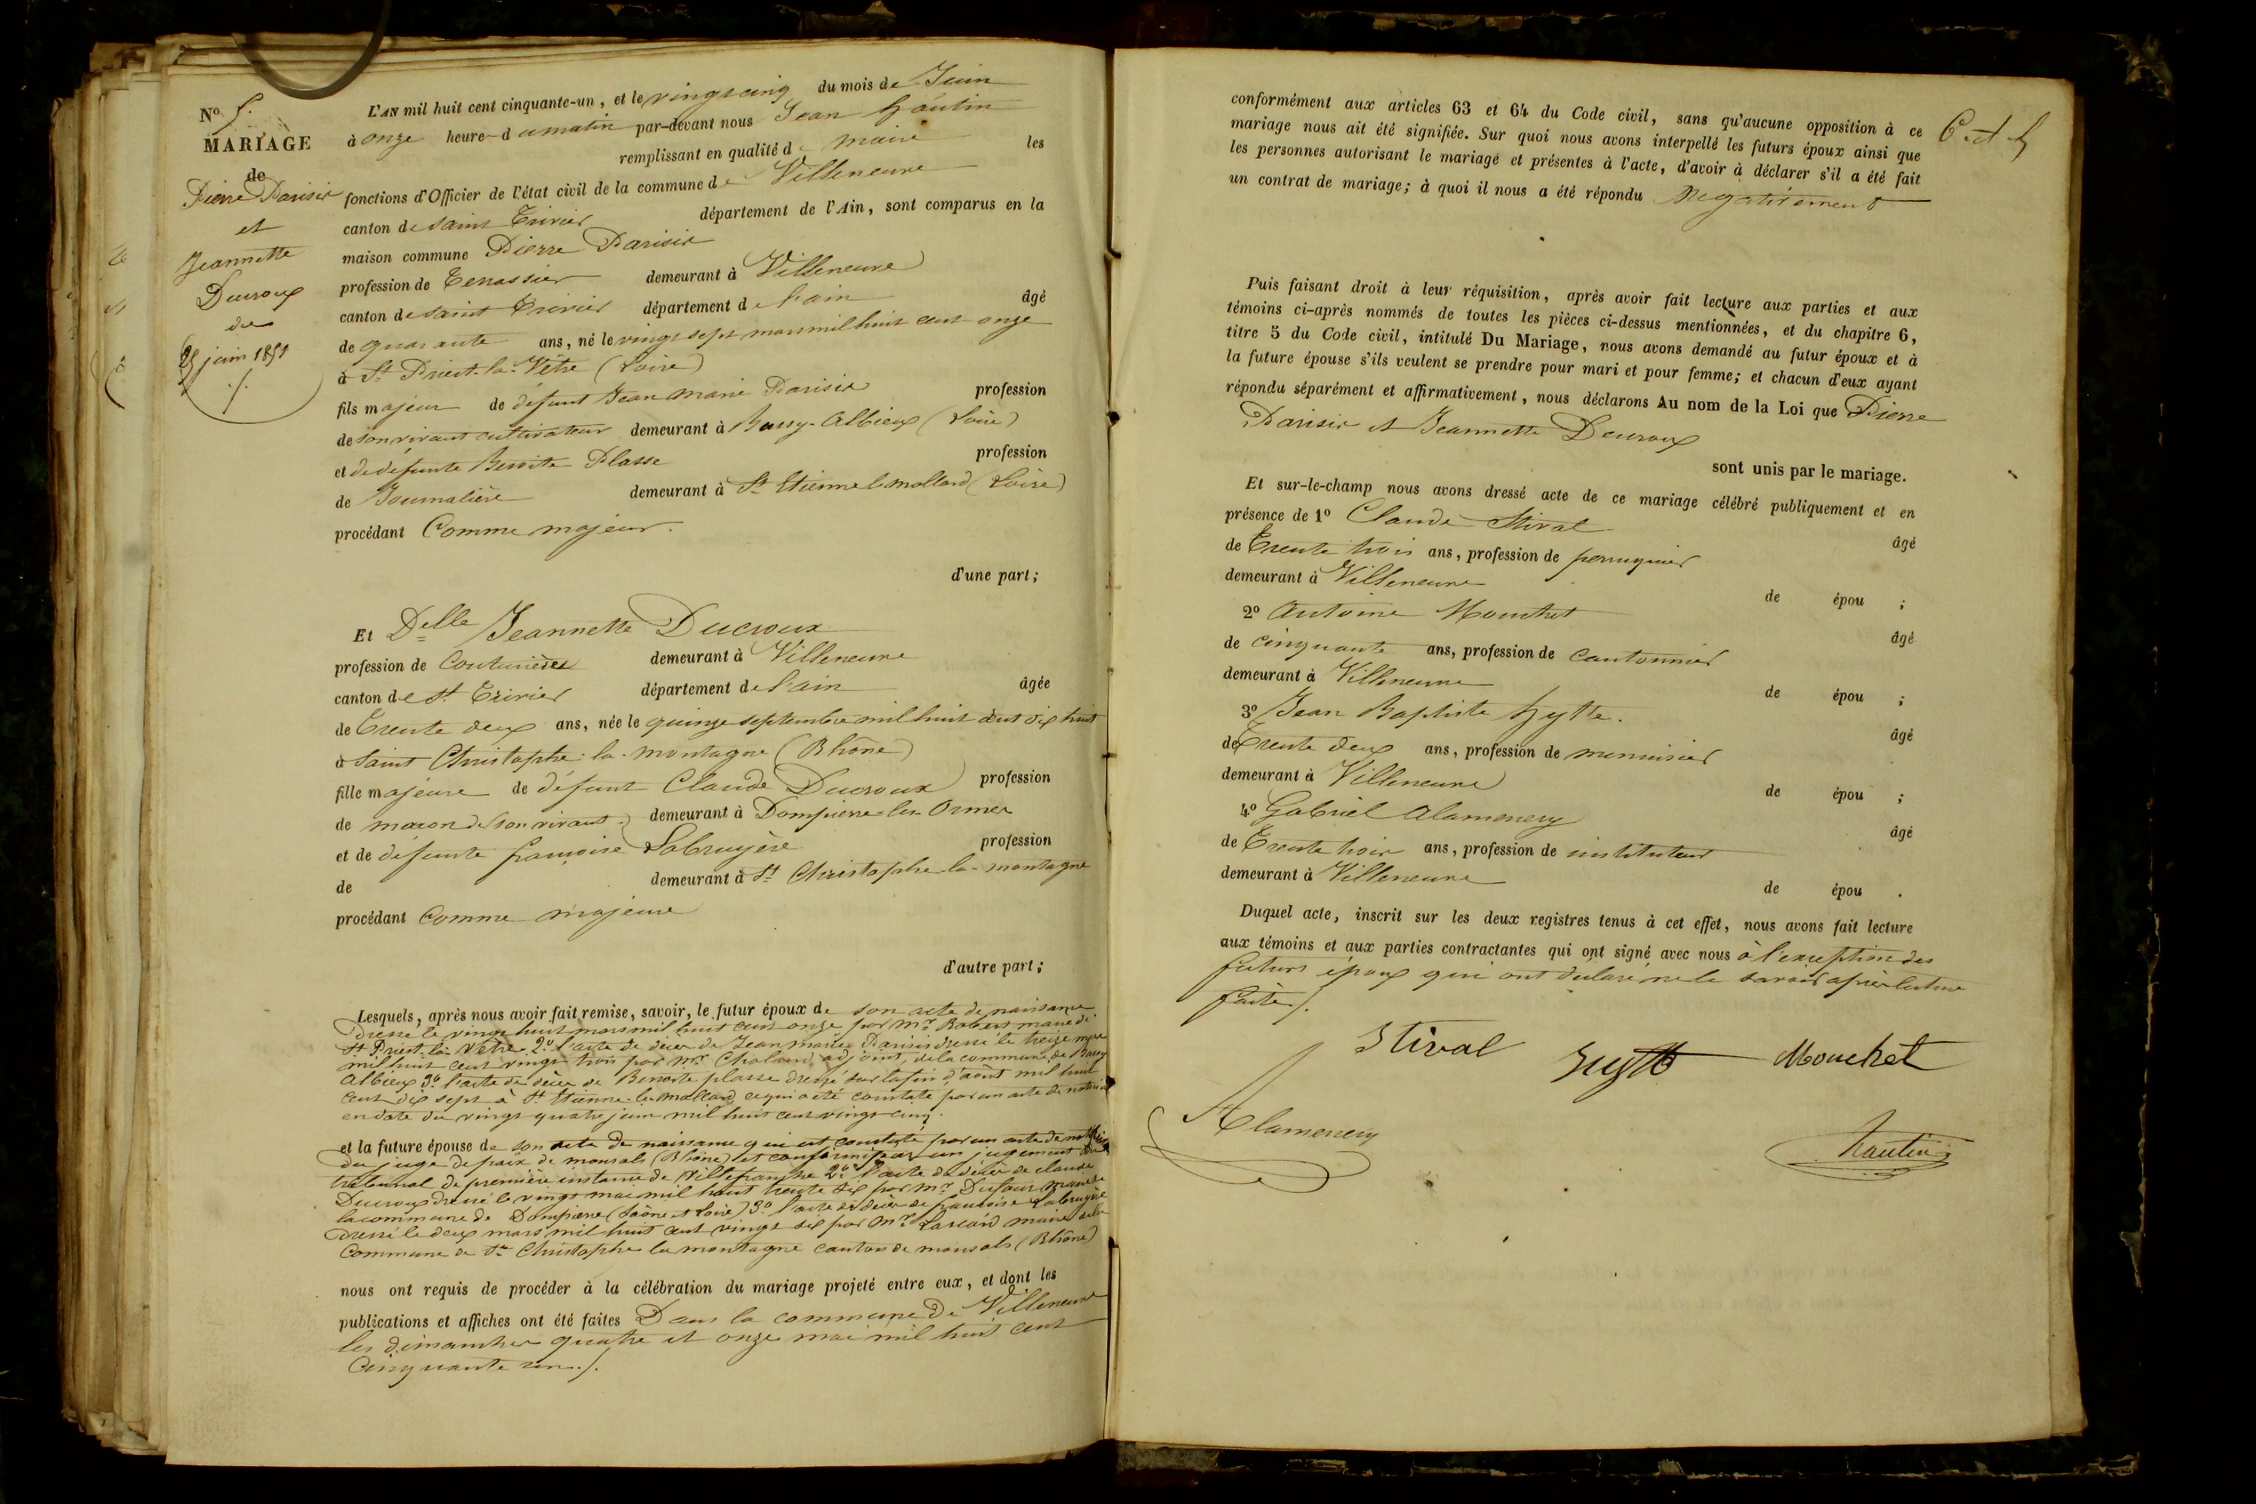 No 5.
MARIAGE
de
Pierre Parisis
et
Jeannette
Ducroux
du
25 juin 1851
./.
L'AN mil huit cent cinquante-un, et le vingt cinq du mois de Juin
à onze heure du matin par-devant nous Jean hautin
remplissant en qualité de maire les
fonctions d'Officier de l'état civil de la commune de Villeneuve
canton de saint Trivier département de l'Ain, sont comparus en la
maison commune Pierre Parisis
profession de Terrassier demeurant à Villeneuve
canton de saint Trivier département de l'ain âgé
de quarante ans, né le vingt sept mars mil huit cent onze
à St Priest-la-Vêtre (Loire)
fils majeur de défunt Jean marie Parisis profession
de son vivant cultivateur demeurant à Bussy-Albieux (Loire)
et de défunte Benoite Plasse profession
de Journalière demeurant à St Etienne le mollard (Loire)
procédant Comme majeur.
d'une part;
Et Delle Jeannette Ducroux
profession de Couturière demeurant à Villeneuve
canton de St Trivier département de l'ain âgée
de Trente deux ans, née le quinze septembre mil huit cent dix huit
à Saint Christophe-la-montagne (Rhône)
fille majeure de défunt Claude Ducroux profession
de maçon de son vivant demeurant à Dompierre les Ormes
et de defunte françoise Labruyère profession
de demeurant à St Christophe la-montagne
procédant Comme majeure
d'autre part;
Lesquels, après nous avoir fait remise, savoir, le futur époux de son acte de naissance
dressé le vingt huit mars mil huit cent onze par Mr Robert maire de
St Priest-la-Vêtre 2o l'acte de décès de Jean marie Parisis dressé le treize
mil huit cent vingt trois par Mr Chaland, adjoint, de la commune de Bussy
Albieux 3o l'acte de décès de Benoite plasse dressé sur la fin d'août mil huit
cent dix sept à St Etienne-le-mollard ce qui a été constaté par un acte de notoriété
en date du vingt quatre juin mil huit cent vingt cinq.
et la future épouse de son acte de naissance qui est constaté par un acte de notoriété
du juge de paix de monsols (Rhône) et confirmé par un jugement du
tribunal de première instance de Villefranche 2o l'acte de décès de claude
Ducroux dressé le vingt mai mil huit trente six par Mr Dufour maire de
la commune de Dompierre (Saône et Loire) 3o l'acte de décès de françoise Labruyère
dressé le deux mars mil huit cent vingt six par Mr maire de la
Commune de St Christophe la montagne canton de monsols (Rhône)
nous ont requis de procéder à la célébration du mariage projeté entre eux, et dont les
publications et affiches ont été faites Dans la commune de Villeneuve
les dimanches quatre et onze mai mil huit cent
Cinquante un ./.
conformément aux articles 63 et 64 du Code civil, sans qu'aucune opposition à ce
mariage nous ait été signifiée. Sur quoi nous avons interpellé les futurs époux ainsi que
les personnes autorisant le mariage et présentes à l'acte, d'avoir à déclarer s'il a été fait
un contrat de mariage; à quoi il nous a été répondu Négativement
Puis faisant droit à leur réquisition, après avoir fait lecture aux parties et aux
témoins ci-après nommés de toutes les pièces ci-dessus mentionnées, et du chapitre 6,
titre 5 du Code civil, intitulé Du Mariage, nous avons demandé au futur époux et à
la future épouse s'ils veulent se prendre pour mari et pour femme; et chacun d'eux ayant
répondu séparément et affirmativement, nous déclarons Au nom de la Loi que Pierre
Parisis et Jeannette Ducroux
sont unis par le mariage.
Et sur-le-champ nous avons dressé acte de ce mariage célébré publiquement et en
présence de 1o Claude Stival
âgé
de Trente trois ans, profession de perruquier
demeurant à Villeneuve
de épou ;
2o Antoine Mouchet
âgé
de cinquante ans, profession de cantonnier
demeurant à Villeneuve
de épou ;
3o Jean Baptiste hytte.
âgé
de Trente deux ans, profession de menuisier
demeurant à Villeneuve
de épou ;
4o Gabriel Alamenery
âgé
de Trente trois ans, profession de instituteur
demeurant à Villeneuve
de épou .
Duquel acte, inscrit sur les deux registres tenus à cet effet, nous avons fait lecture
aux témoins et aux parties contractantes qui ont signé avec nous à l'exception des
futurs époux qui ont déclaré ne le savoir après lecture
faite ./.
Stival
Mouchet
Alamenery
hautin